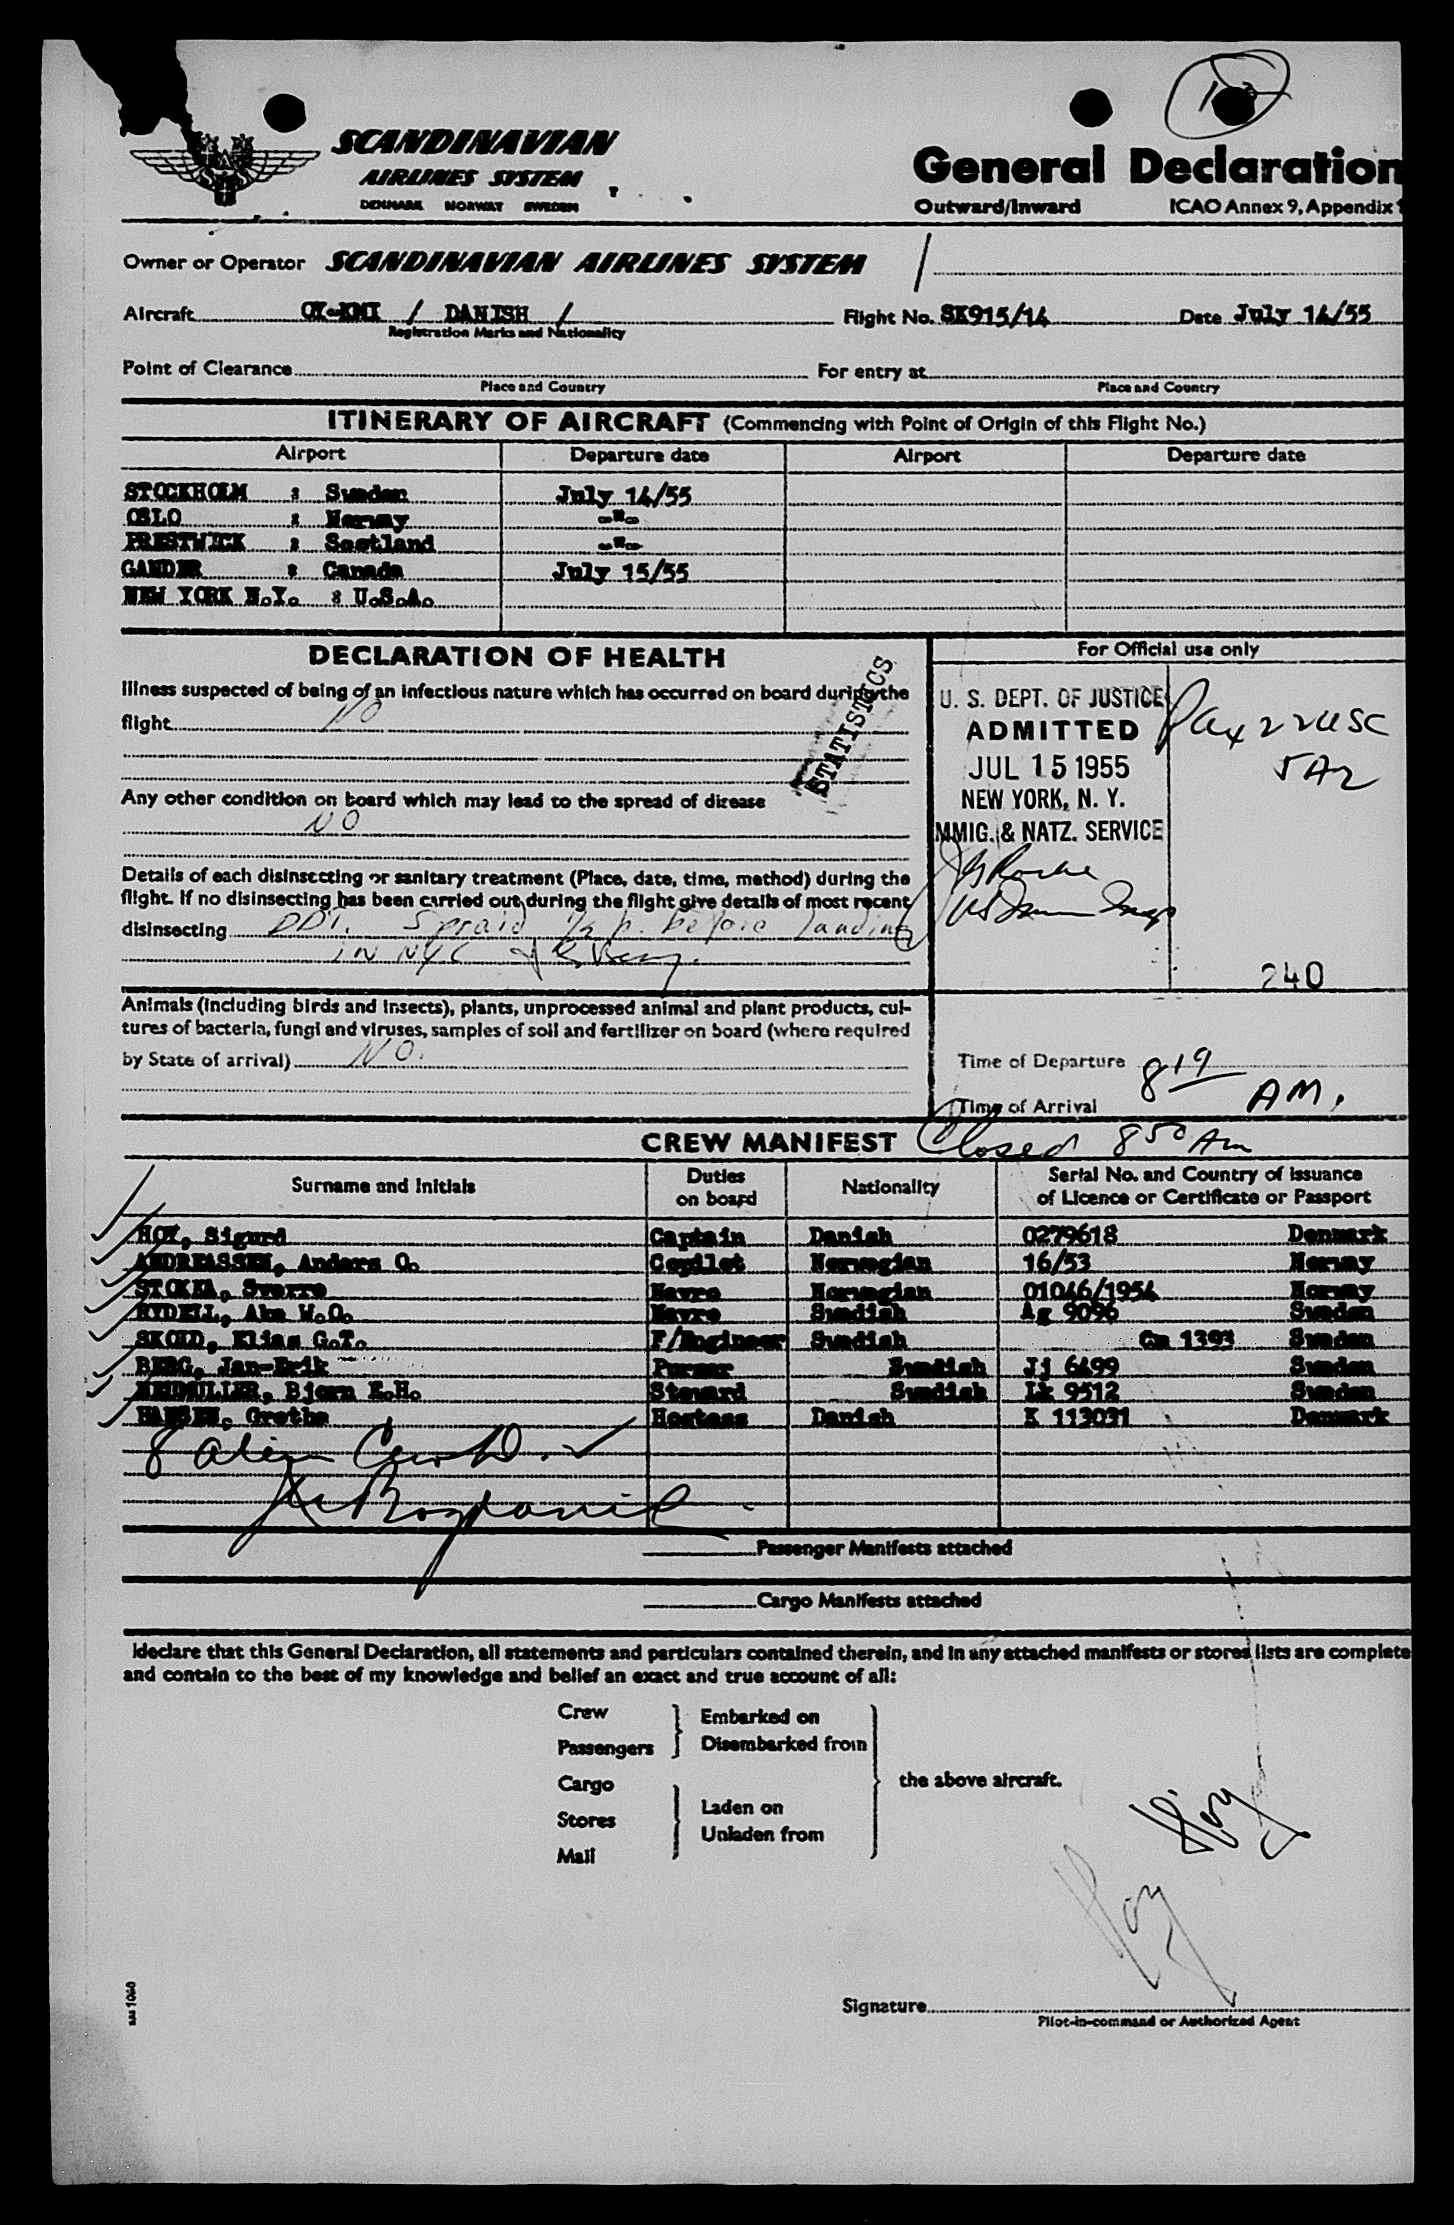 SCANDINAVIAN
AIRLINES SYSTEM
DENMARK NORWAY SWEDEN
General Declaration
Outward/Inward ICAO Annex 9, Appendix 1
Owner or Operator SCANDINAVIAN AIRLINES SYSTEM
Aircraft OY-KMI / DANISH / Flight No. SK915/14 Date July 14/55
Registration Marks and Nationality
Point of Clearance For entry at
Place and Country Place and Country
ITINERARY OF AIRCRAFT (Commencing with Point of Origin of this Flight No.)
Airport Departure date Airport Departure date
STOCKHOLM : Sweden July 14/55
OSLO : Norway -"-
PRESTWICK : Scotland -"-
GANDER : Canada July 15/55
NEW YORK N.Y. : U.S.A.
DECLARATION OF HEALTH
Illness suspected of being of an infectious nature which has occurred on board during the
flight NO
Any other condition on board which may lead to the spread of disease
NO
Details of each disinsecting or sanitary treatment (Place, date, time, method) during the
flight. If no disinsecting has been carried out during the flight give details of most recent
disinsecting DDT. Spraid ½ h. before landing
IN NYC
Animals (including birds and insects), plants, unprocessed animal and plant products, cul-
tures of bacteria, fungi and viruses, samples of soil and fertilizer on board (where required
by State of arrival) NO.
STATISTICS
For Official use only
U. S. DEPT. OF JUSTICE
ADMITTED
JUL 15 1955
NEW YORK, N. Y.
IMMIG. & NATZ. SERVICE
Pax 22 USC
5 A2
240
Time of Departure 8 19
Time of Arrival AM.
Closed 8 50 Am
CREW MANIFEST
Surname and Initials Duties on board Nationality Serial No. and Country of Issuance of Licence or Certificate or Passport
HOY, Sigurd Captain Danish 0279618 Denmark
ANDREASSEN, Anders O. Copilot Norwegian 16/53 Norway
STOKKA, Sverre Navro Norwegian 01046/1954 Norway
RYDELL, Ake W.O. Navro Swedish Ag 9096 Sweden
SKOLD, Elias G.T. F/Engineer Swedish Cm 1393 Sweden
BERG, Jan-Erik Purser Swedish Jj 6499 Sweden
HEIDMULLER, Bjorn E.H. Steward Swedish Ik 9512 Sweden
HANSEN, Grethe Hostess Danish K 113031 Denmark
8 alien Crew
Passenger Manifests attached
Cargo Manifests attached
I declare that this General Declaration, all statements and particulars contained therein, and in any attached manifests or stores lists are complete
and contain to the best of my knowledge and belief an exact and true account of all:
Crew
Passengers
Embarked on
Disembarked from
Cargo
Stores
Mail
Laden on
Unladen from
the above aircraft.
Hoy
Hoy
Signature
Pilot-in-command or Authorized Agent